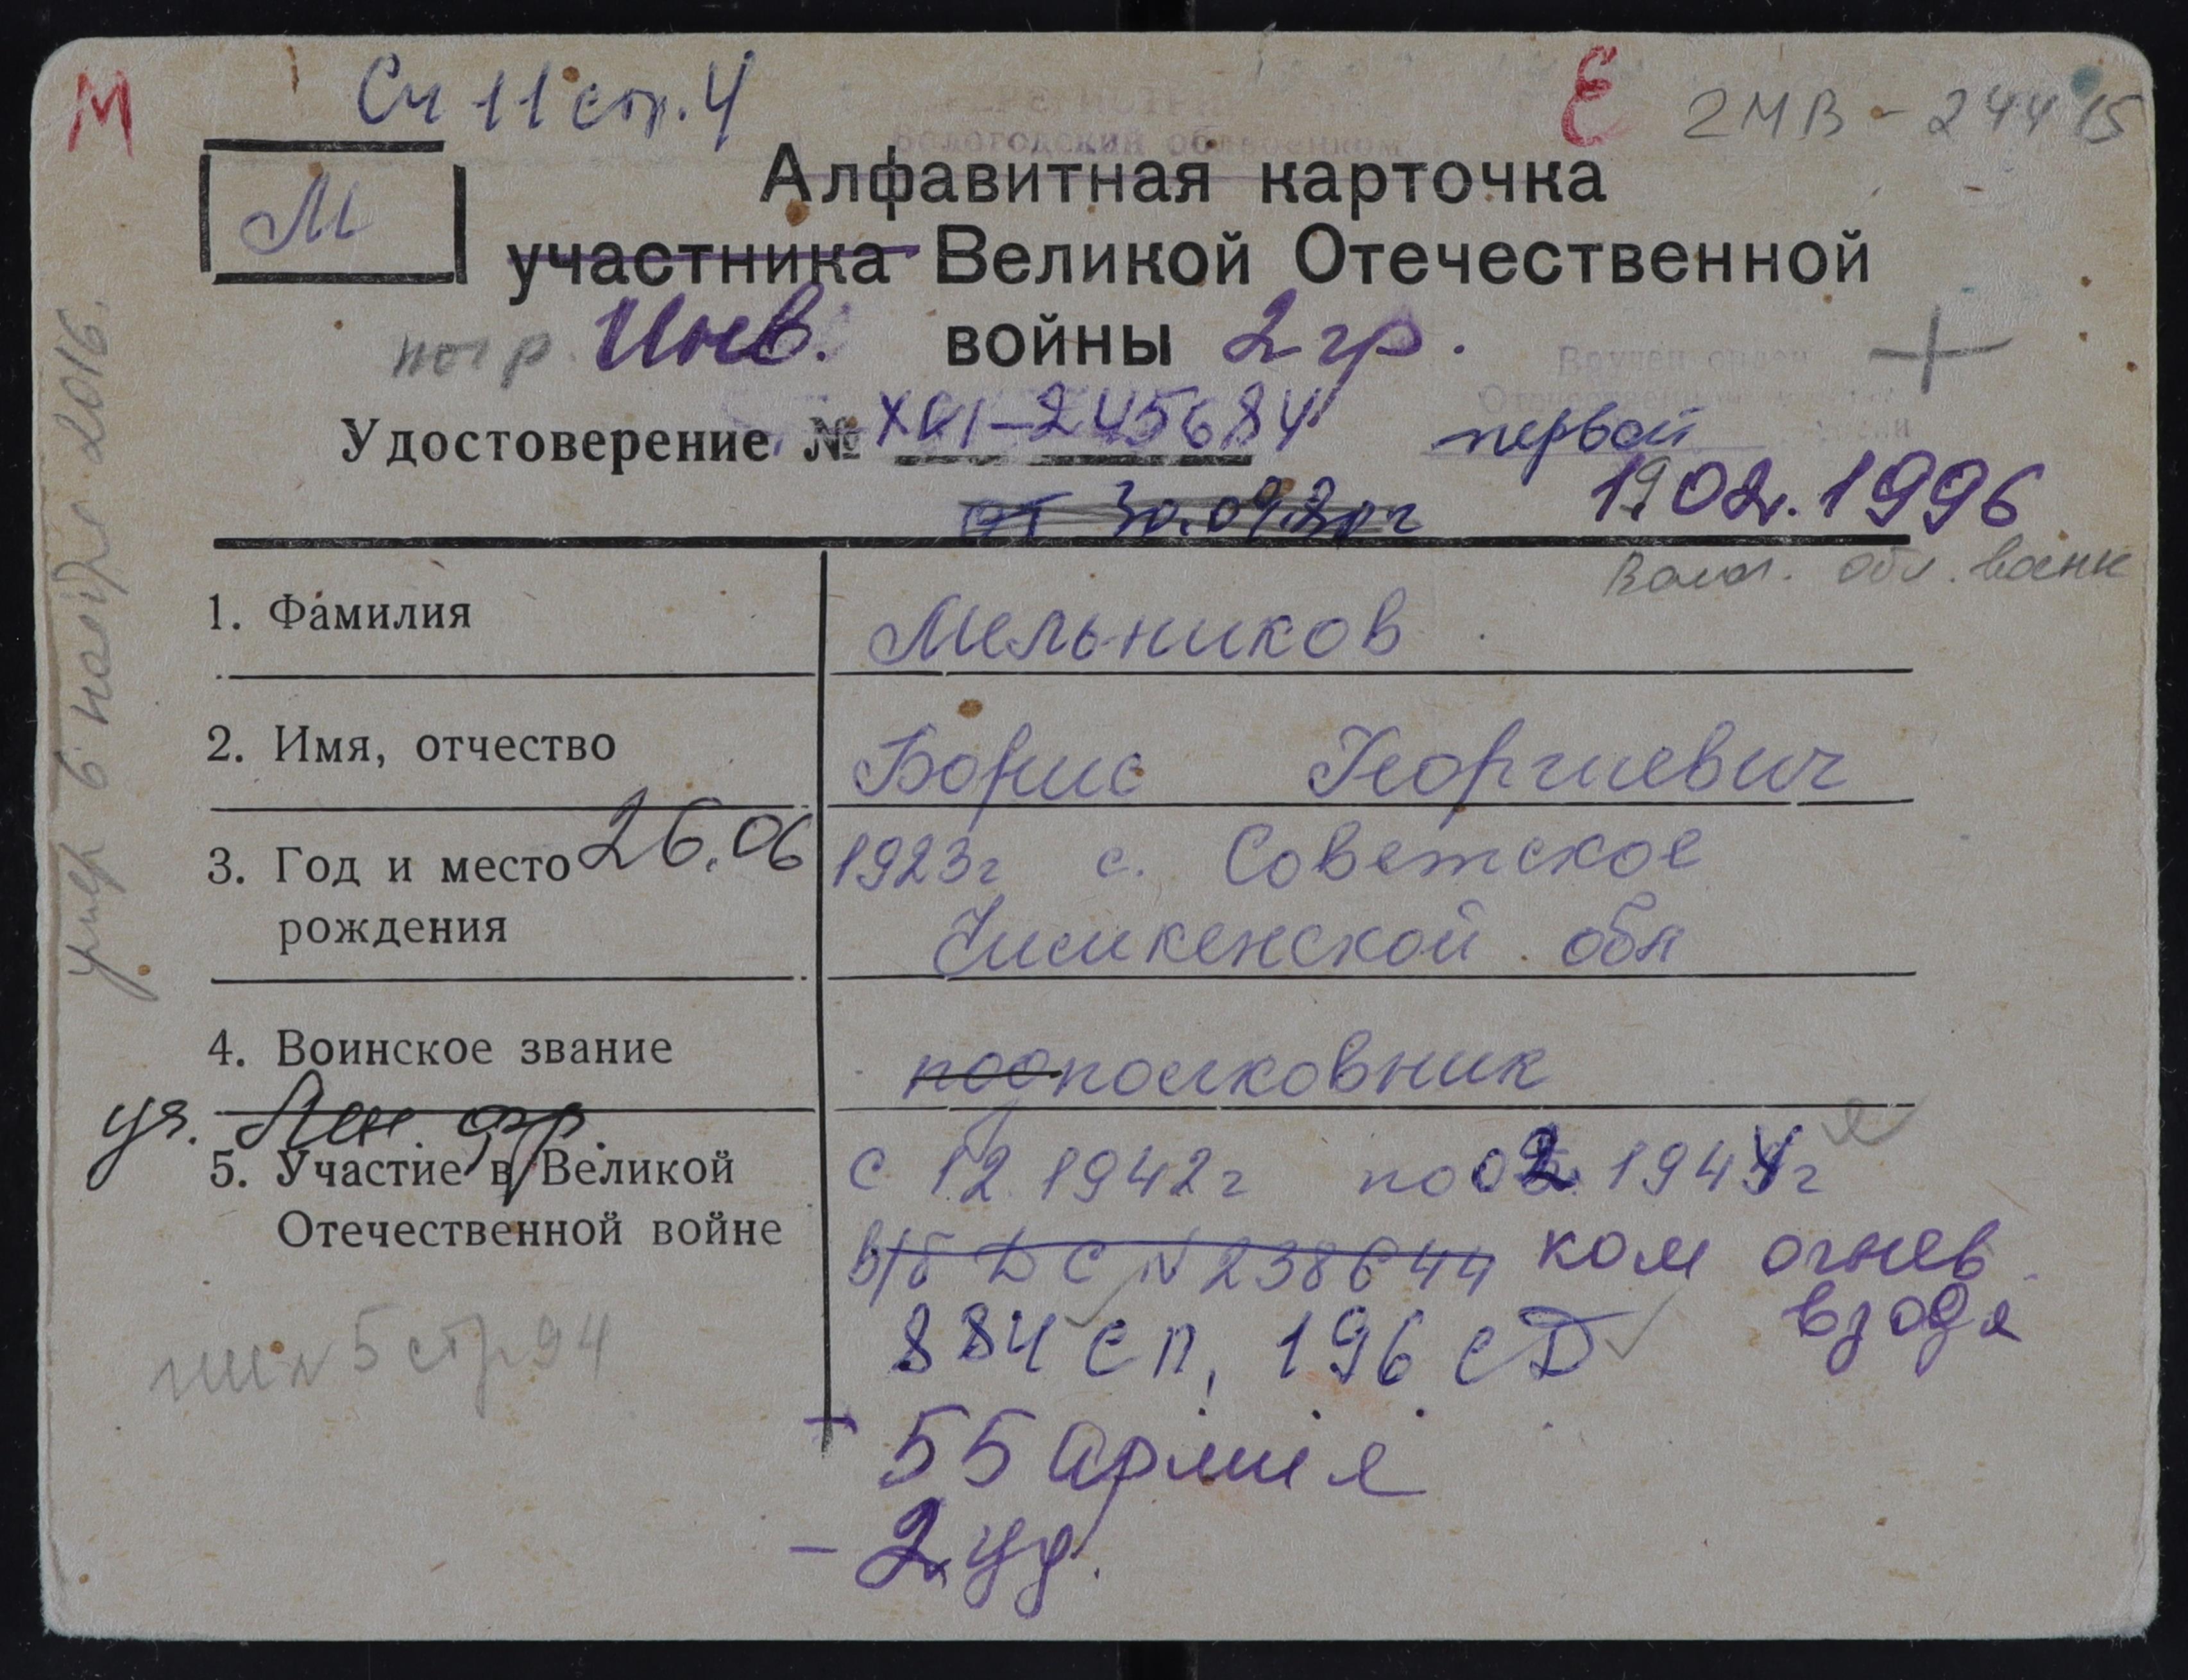 М
Сч 11 стр. 4
Е 2МВ - 244415
М
Вологодский облвоенком
Алфавитная карточка
участника Великой Отечественной
Инв. войны 2 гр.
Вручен орден
Удостоверение № 245684
первой
от 30.09.80г 19 02. 1996
обл. воен
1. Фамилия Мельников
2. Имя, отчество Борис Георгиевич
3. Год и место 26.06 1923г с. Советское
рождения Чимкенской обл
4. Воинское звание подполковник
уч. Лен. фр.
5. Участие в Великой с 12 1942г по 02. 1944г
Отечественной войне в/б ДС N 238644 ком огнев.
взода
884 сп, 196 сД
5 стр 94
+ 55 армия
- 2 уд.
умер 6 ноября 2016.